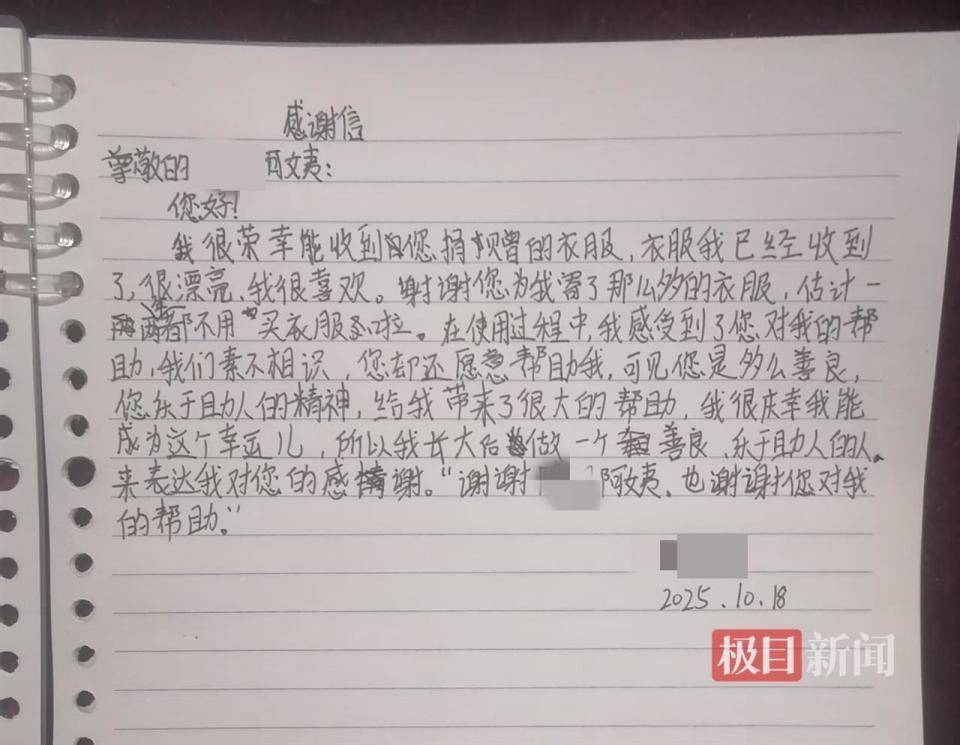 感谢信
尊敬的 阿姨：
您好！
我很荣幸能收到由您捐赠的衣服，衣服我已经收到
了，很漂亮、我很喜欢。谢谢您为我寄了那么多的衣服，估计一
两年都不用买衣服啦。在使用过程中，我感受到了您对我的帮
助，我们素不相识，您却还愿意帮助我，可见您是多么善良，
您乐于助人的精神，给我带来了很大的帮助，我很庆幸我能
成为这个幸运儿，所以我长大后做一个善良、乐于助人的人
来表达我对您的感谢。“谢谢 阿姨、也谢谢您对我
的帮助。”
2025.10.18
极目新闻